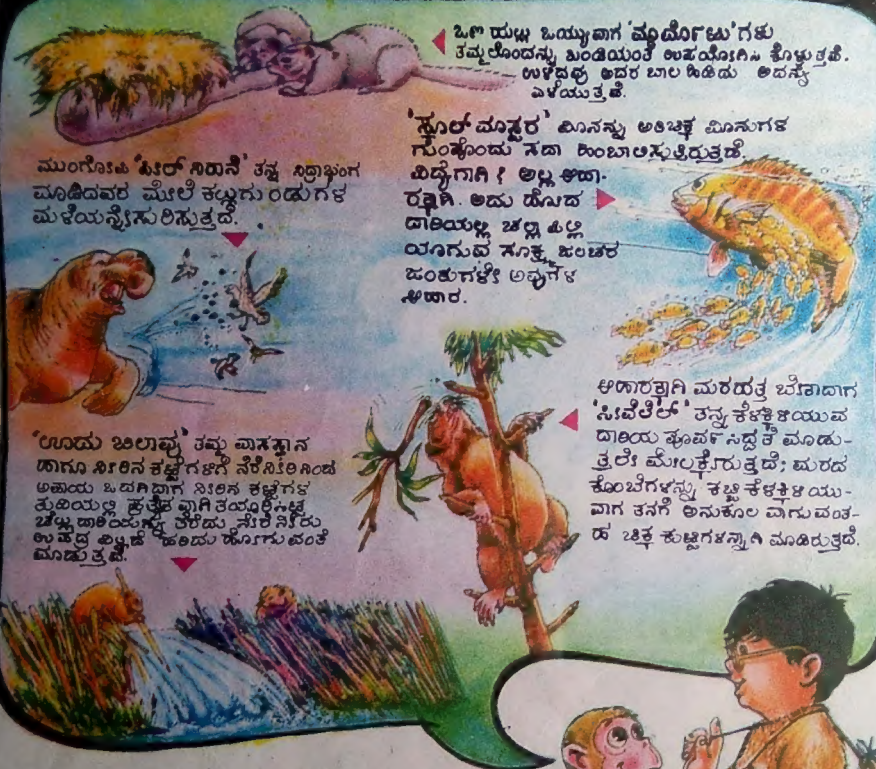 ಒಣ ಹುಲ್ಲು ಒಯ್ಯುವಾಗ 'ಮಾರ್ಮೊಟು'ಗಳು
ತಮ್ಮಲೊಂದನ್ನು ಬಂಡಿಯಂತೆ ಉಪಯೋಗಿಸಿ ಕೊಳ್ಳುತ್ತವೆ.
ಉಳಿದವು ಅದರ ಬಾಲ ಹಿಡಿದು ಅದನ್ನು
ಎಳೆಯುತ್ತವೆ.
'ಸ್ಕೂಲ್ ಮಾಸ್ಟರ' ಮೀನನ್ನು ಅತಿಚಿಕ್ಕ ಮೀನುಗಳ
ಗುಂಪೊಂದು ಸದಾ ಹಿಂಬಾಲಿಸುತ್ತಿರುತ್ತದೆ.
ವಿದ್ಯೆಗಾಗಿ? ಅಲ್ಲ ಆಹಾ-
ರಕ್ಕಾಗಿ. ಅದು ಹೋದ
ದಾರಿಯಲ್ಲಿ ಚೆಲ್ಲಾ ಪಿಲ್ಲಿ
ಯಾಗುವ ಸೂಕ್ಷ್ಮ ಜಲಚರ
ಜಂತುಗಳೇ ಅವುಗಳ
ಆಹಾರ.
ಮುಂಗೋಪಿ ತನ್ನ ನಿದ್ರಾಭಂಗ
ಮಾಡಿದವರ ಮೇಲೆ ಕಲ್ಲುಗುಂಡುಗಳ
ಮಳೆಯನ್ನೇ ಸುರಿಸುತ್ತದೆ.
ಆಹಾರಕ್ಕಾಗಿ ಮರಹತ್ತ ಬೇಕಾದಾಗ
ತನ್ನ ಕೆಳಕ್ಕಿಳಿಯುವ
ದಾರಿಯ ಪೂರ್ವ ಸಿದ್ದತೆ ಮಾಡು-
ತ್ತಲೇ ಮೇಲಕ್ಕೇರುತ್ತದೆ; ಮರದ
ಕೊಂಬೆಗಳನ್ನು ಕಚ್ಚಿ ಕೆಳಕ್ಕಿಳಿಯು-
ವಾಗ ತನಗೆ ಅನುಕೂಲ ವಾಗುವಂತ-
ಹ ಚಿಕ್ಕ ಕುಟ್ಟಿಗಳನ್ನಾಗಿ ಮಾಡಿರುತ್ತದೆ.
'ಊದು ಬಿಲಾವು' ತಮ್ಮ ವಾಸಸ್ಥಾನ
ಹಾಗೂ ನೀರಿನ ಕಟ್ಟೆಗಳಿಗೆ ನೆರೆನೀರಿನಿಂದ
ಅಪಾಯ ಒದಗಿದಾಗ ನೀರಿನ ಕಟ್ಟೆಗಳ
ತುದಿಯಲ್ಲಿ
ತೆರೆದು ನೆರೆ ನೀರು
ಹರಿದು ಹೋಗುವಂತೆ
ಮಾಡುತ್ತವೆ.